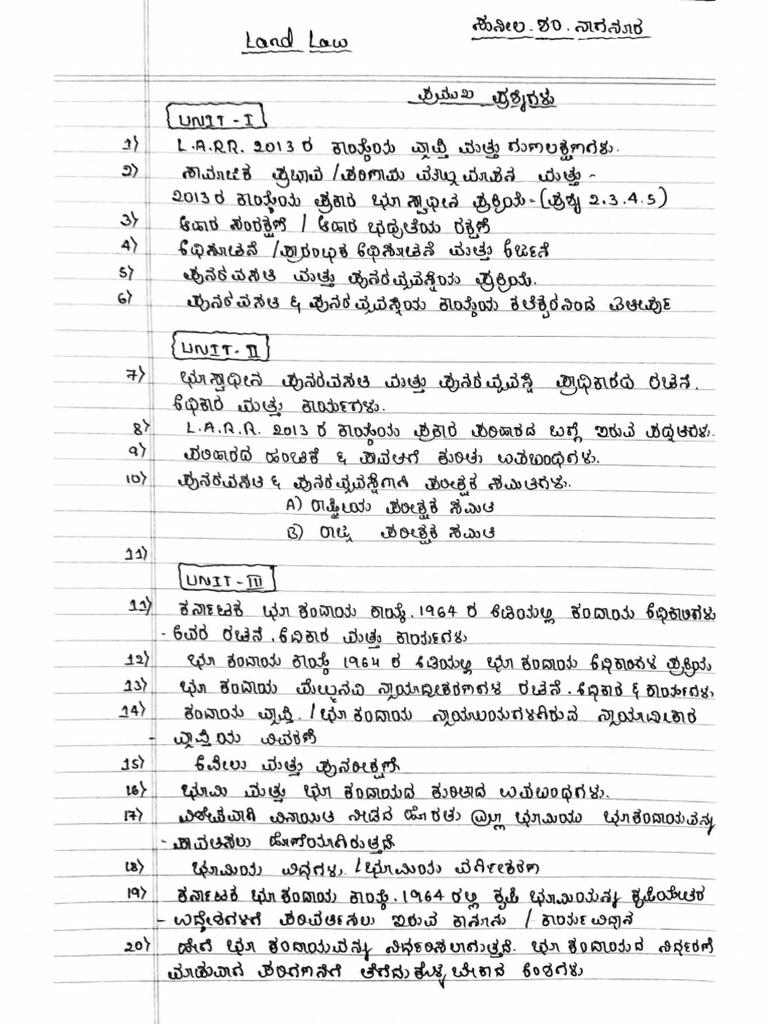 Land Law
ಸುನೀಲ. ಶಂ. ನಾಗನೂರ
ಪ್ರಮುಖ ಪ್ರಶ್ನೆಗಳು
UNIT-I
1) L.A.RR. 2013 ರ ಕಾಯ್ದೆಯ ವ್ಯಾಪ್ತಿ ಮತ್ತು ಗುಣಲಕ್ಷಣಗಳು.
2) ಸಾಮಾಜಿಕ ಪ್ರಭಾವ / ಪರಿಣಾಮ ಮೌಲ್ಯಮಾಪನ ಮತ್ತು -
2013 ರ ಕಾಯ್ದೆಯ ಪ್ರಕಾರ ಭೂಸ್ವಾಧೀನ ಪ್ರಕ್ರಿಯೆ - (ಪ್ರಶ್ನೆ 2.3.4.5)
3) ಆಹಾರ ಸಂರಕ್ಷಣೆ / ಆಹಾರ ಭದ್ರತೆಯ ರಕ್ಷಣೆ
4) ಅಧಿಸೂಚನೆ / ಪ್ರಾರಂಭಿಕ ಅಧಿಸೂಚನೆ ಮತ್ತು
5) ಪುನರವಸತಿ ಮತ್ತು ಪುನರವ್ಯವಸ್ಥೆಯ ಪ್ರಕ್ರಿಯೆ.
6) ಪುನರವಸತಿ & ಪುನರವ್ಯವಸ್ಥೆಯ ಕಾಯ್ದೆಯ ಕಲೆಕ್ಟರನಿಂದ ಐತೀರ್ಪು
UNIT-II
7) ಭೂಸ್ವಾಧೀನ ಪುನರವಸತಿ ಮತ್ತು ಪುನರವ್ಯವಸ್ಥೆ ಪ್ರಾಧಿಕಾರದ ರಚನೆ.
ಅಧಿಕಾರ ಮತ್ತು ಕಾರ್ಯಗಳು.
8) L.A.R.R. 2013 ರ ಕಾಯ್ದೆಯ ಪ್ರಕಾರ ಪರಿಹಾರದ ಬಗ್ಗೆ ಇರುವ ಪದ್ಧತಿಗಳು.
9) ಪರಿಹಾರದ ಹಂಚಿಕೆ & ಪಾವತಿಗೆ ಕುರಿತು ಉಪಬಂಧಗಳು.
10) ಪುನರವಸತಿ & ಪುನರವ್ಯವಸ್ಥೆಗಾಗಿ ಪರೀಕ್ಷಕ ಸಮಿತಿಗಳು.
A) ರಾಷ್ಟ್ರೀಯ ಪರೀಕ್ಷಕ ಸಮಿತಿ
B) ರಾಜ್ಯ ಪರೀಕ್ಷಕ ಸಮಿತಿ
11)
UNIT-III
11) ಕರ್ನಾಟಕ ಭೂ ಕಂದಾಯ ಕಾಯ್ದೆ. 1964 ರ ಅಡಿಯಲ್ಲಿ ಕಂದಾಯ ಅಧಿಕಾರಿಗಳು
- ಅವರ ರಚನೆ. ಅಧಿಕಾರ ಮತ್ತು ಕಾರ್ಯಗಳು
12) ಭೂ ಕಂದಾಯ ಕಾಯ್ದೆ 1964 ರ ಅಡಿಯಲ್ಲಿ ಭೂ ಕಂದಾಯ ಅಧಿಕಾರಿಗಳ ಪ್ರಕ್ರಿಯೆ
13) ಭೂ ಕಂದಾಯ ಮೇಲ್ಮನವಿ ನ್ಯಾಯಾಧೀಕರಣಗಳ ರಚನೆ. ಅಧಿಕಾರ & ಕಾರ್ಯಗಳು
14) ಕಂದಾಯ ವ್ಯಾಪ್ತಿ. / ಭೂ ಕಂದಾಯ ನ್ಯಾಯಾಲಯಗಳಿಗಿರುವ ನ್ಯಾಯಾಧೀಕಾರ
- ವ್ಯಾಪ್ತಿಯ ವಿವರಣೆ
15) ಅಪೀಲು ಮತ್ತು ಪುನರೀಕ್ಷಣೆ
16) ಭೂಮಿ ಮತ್ತು ಭೂ ಕಂದಾಯದ ಕುರಿತಾದ ಉಪಬಂಧಗಳು.
17) ವಿಶೇಷವಾಗಿ ವಿನಾಯಿತಿ ನೀಡಿದ ಹೊರತು ಎಲ್ಲಾ ಭೂಮಿಯು ಭೂಕಂದಾಯವನ್ನು
- ಪಾವತಿಸಲು ಹೊಣೆಯಾಗಿರುತ್ತದೆ
18) ಭೂಮಿಯ ವಿಧಗಳು. / ಭೂಮಿಯ ವರ್ಗೀಕರಣ
19) ಕರ್ನಾಟಕ ಭೂ ಕಂದಾಯ ಕಾಯ್ದೆ. 1964 ರಲ್ಲಿ ಕೃಷಿ ಭೂಮಿಯನ್ನು ಕೃಷಿಯೇತರ
- ಉದ್ದೇಶಗಳಿಗೆ ಪರಿವರ್ತಿಸಲು ಇರುವ ಕಾನೂನು / ಕಾರ್ಯ ವಿಧಾನ
20) ಹೇಗೆ ಭೂ ಕಂದಾಯವನ್ನು ನಿರ್ಧರಿಸಲಾಗುತ್ತದೆ. ಭೂ ಕಂದಾಯದ ನಿರ್ಧರಣೆ
ಮಾಡುವಾಗ ಪರಿಗಣನೆಗೆ ತೆಗೆದುಕೊಳ್ಳಬೇಕಾದ ಅಂಶಗಳು